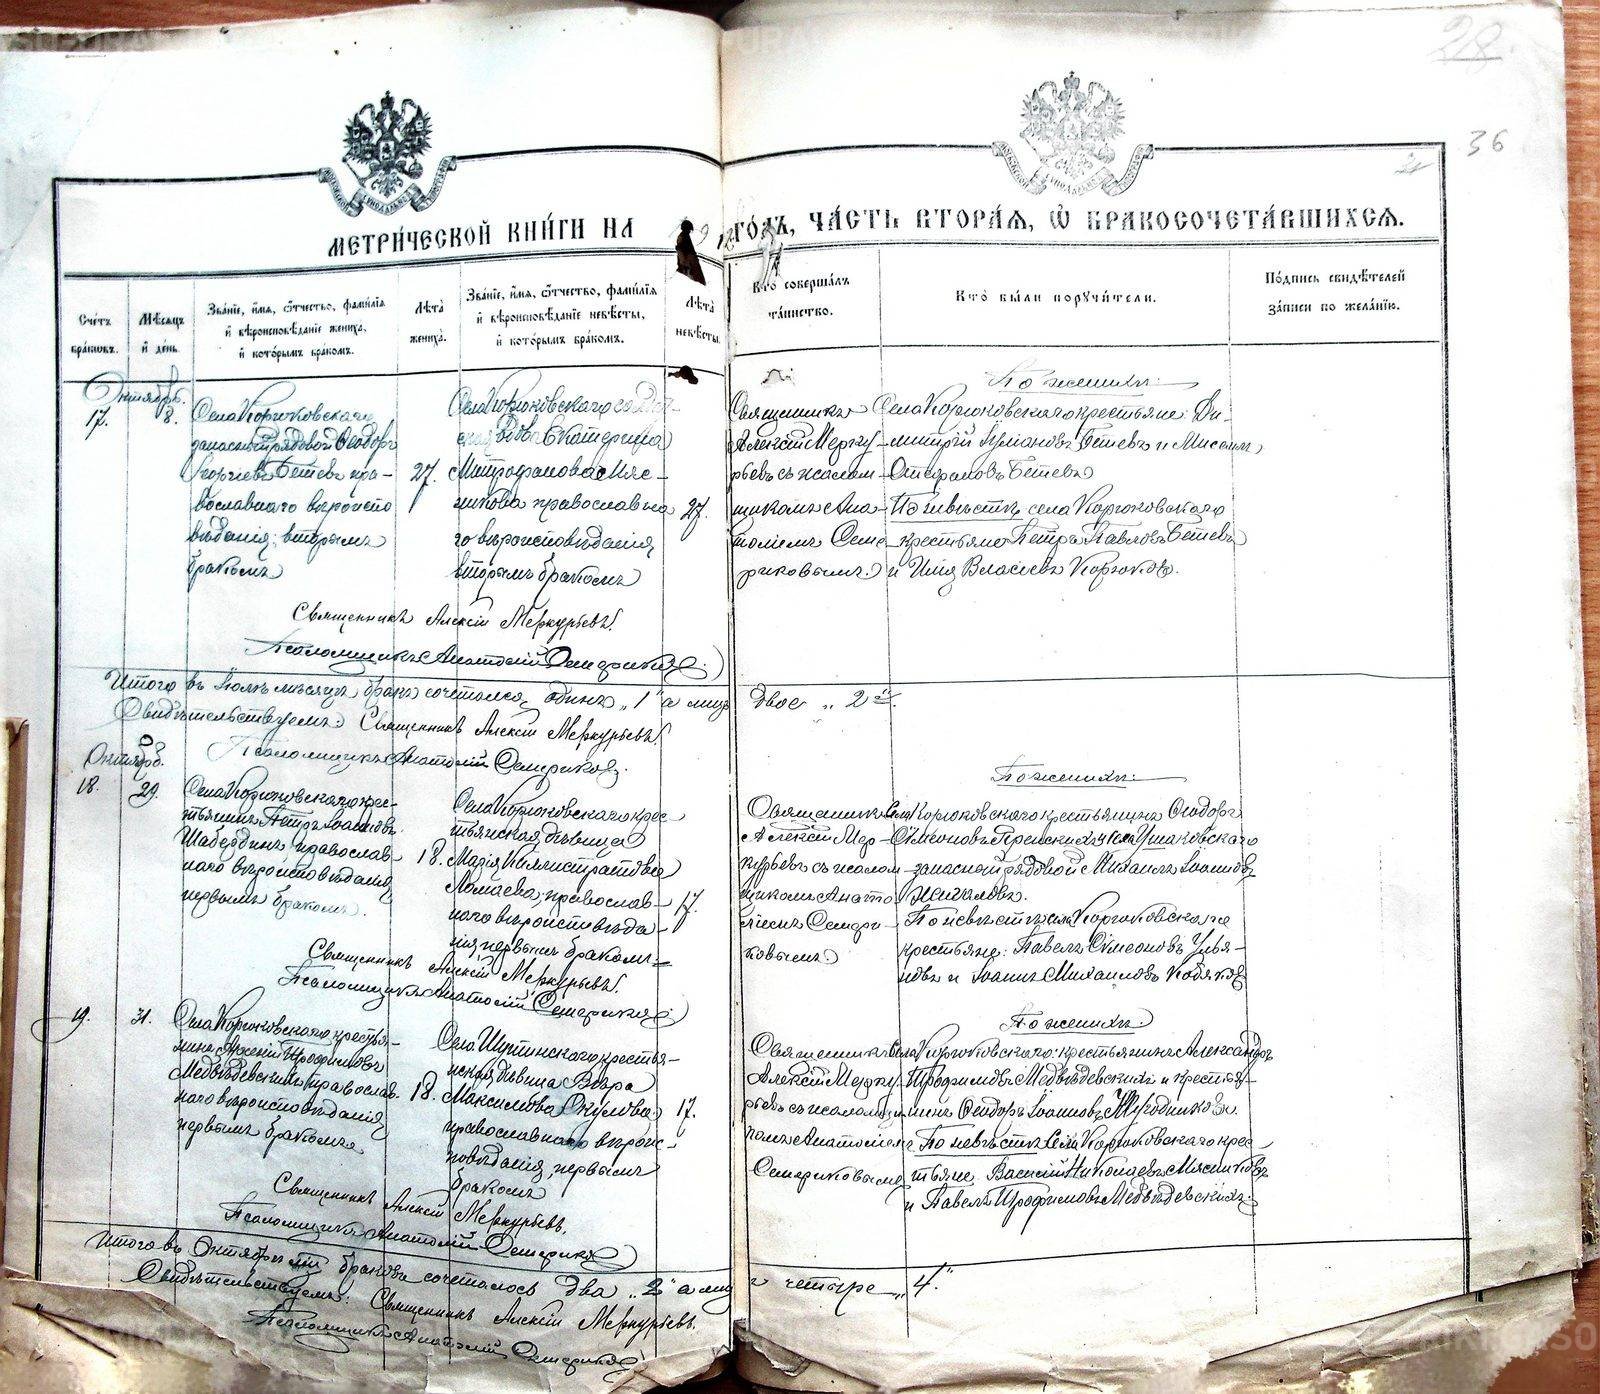 28.
36
МЕТРИЧЕСКОЙ КНИГИ НА
ГОДЪ, ЧАСТЬ ВТОРАЯ, Ѡ БРАКОСОЧЕТАВШИХСЯ.
Счетъ браковъ.
Мѣсяцъ и день.
Званіе, имя, отчество, фамилія и вѣроисповѣданіе жениха, и которымъ бракомъ.
Лѣта жениха.
Званіе, имя, отчество, фамилія и вѣроисповѣданіе невѣсты, и которымъ бракомъ.
Лѣта невѣсты.
Кто совершалъ таинство.
Кто были поручители.
Подпись свидѣтелей записи по желанію.
17.
8.
Села Корюковскаго
запасный рядовой Ѳеодоръ
Георгіевъ Бетевъ пра-
вославнаго вѣроиспо
вѣданія; вторымъ
бракомъ
27.
Села Корюковскаго солдат-
ская вдова Екатерина
Митрофанова Мяс-
никова православна
го вѣроисповѣданія,
вторымъ бракомъ
27.
Священникъ
Алексій Мерку-
рьевъ съ псалом-
щикомъ Ана-
толіемъ Семе-
риковымъ.
По женихѣ:
Села Корюковскаго крестьяне: Ди-
митрій Бетевъ и
Бетевъ
По невѣстѣ села Корюковскаго
крестьяне Петръ Павловъ Бетевъ
и Илія Власіевъ Корюковъ.
Священникъ Алексій Меркурьевъ.
Псаломщикъ Анатолій Семериковъ
Итого въ мѣсяцѣ бракъ сочетался одинъ „1" а лицъ двое „2".
Свидѣтельствуемъ: Священникъ Алексій Меркурьевъ.
Псаломщикъ Анатолій Семериковъ.
Октябрь.
18.
29.
Села Корюковскаго крес-
тьянинъ Петръ Іоанновъ
Шабердинъ, православ-
наго вѣроисповѣданія
первымъ бракомъ.
18.
Села Корюковскаго крес
тьянская дѣвица
Марія Каллистратова
Ломаева, православ-
наго вѣроисповѣда-
нія, первымъ бракомъ
17.
Священникъ
Алексій Мер-
курьевъ съ псалом
щикомъ Анато
ліемъ Семери-
ковымъ
По женихѣ:
Села Корюковскаго крестьянинъ Ѳеодоръ
Сѵмеоновъ и села Ушаковскаго
запасной рядовой Михаилъ Іоанновъ
По невѣстѣ села Корюковскаго
крестьяне: Павелъ Сѵмеоновъ Улья-
новъ и Іоаннъ Михаиловъ Кобяковъ
Священникъ Алексій Меркурьевъ.
Псаломщикъ Анатолій Семериковъ
19.
31.
Села Корюковскаго крестья-
нинъ Арсеній Трофимовъ
Медвѣдевскихъ православ-
наго вѣроисповѣданія,
первымъ бракомъ
18.
Села Шутинскаго крестья-
нская дѣвица Вѣра
Максимова Окулова
православнаго вѣроис-
повѣданія, первымъ
бракомъ
17.
Священникъ
Алексій Мерку
рьевъ съ псаломщи
комъ Анатоліемъ
Семериковымъ
По женихѣ:
Села Корюковскаго: крестьянинъ Александръ
Трофимовъ Медвѣдевскихъ и крестья-
нинъ Ѳеодоръ Іоанновъ
По невѣстѣ Села Корюковскаго крес-
тьяне Василій Николаевъ Мясниковъ
и Павелъ Трофимовъ Медвѣдевскихъ.
Священникъ Алексій Меркурьевъ.
Псаломщикъ Анатолій Семериковъ
Итого въ Октябрѣ м-цѣ браковъ сочеталось два „2" а лицъ четыре „4."
Свидѣтельствуемъ: Священникъ Алексій Меркурьевъ.
Псаломщикъ Анатолій Семериковъ